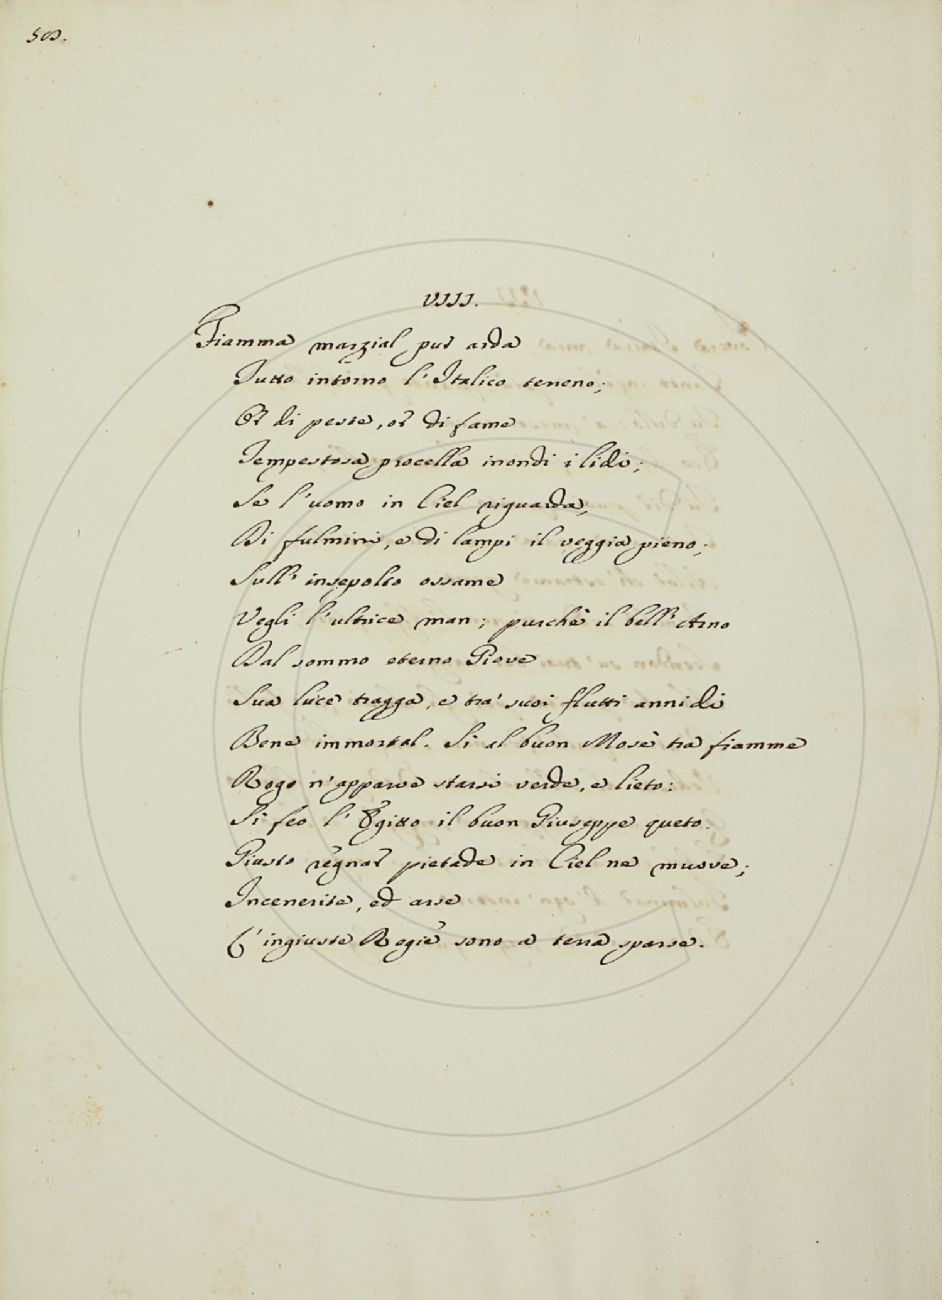 500.
VIII.
Fiamma marzial pur arda
Tutto intorno l'Italico terreno;
Or di peste, or di fame
Tempestosa procella inondi i lidi;
Se l'uomo in Ciel riguarda,
Di fulmini, e di lampi il veggia pieno;
Sull' insepolto ossame
Vegli l'ultrice man; purchè il bell' Arno
Dal sommo eterno Giove
Sua luce tragga, e tra' suoi flutti annidi
Bene immortal. Si al buon Mosè tra fiamme
Rogo n'apparve starsi verde, e lieto:
Si feo l'Egitto il buon Giuseppe queto.
Giusto regnar pietade in Ciel ne muove;
Incenerite, ed arse
L'ingiuste Regie sono a terra sparse.